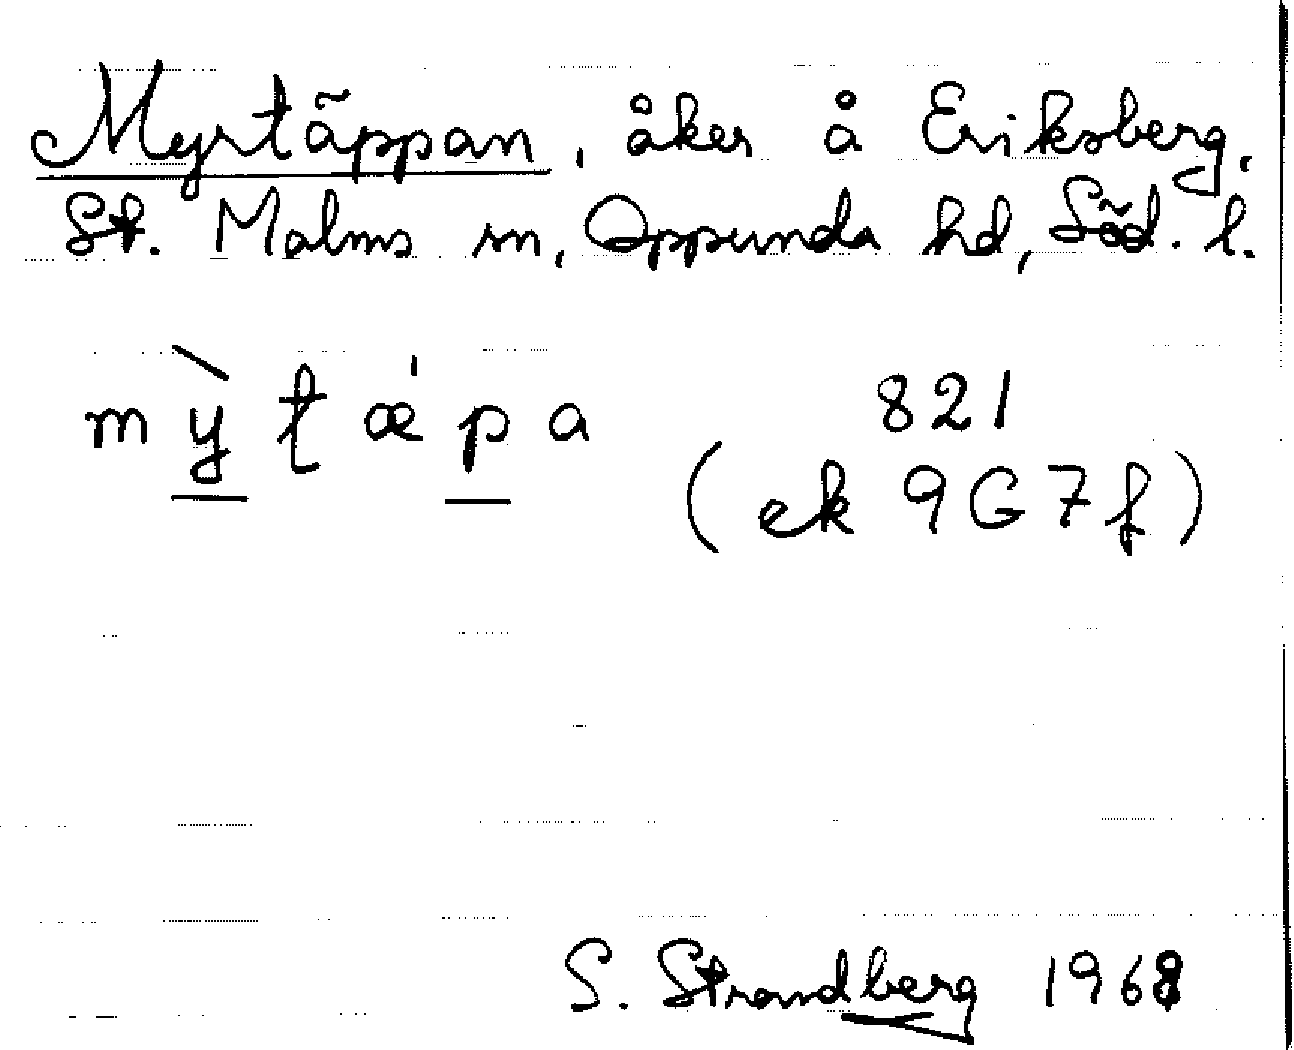 Myrtäppan, åker å Eriksberg,
St. Malms sn, Oppunda hd, Söd. l.
m ỳ̠ ʈ ǽ p̠ a 821
(ek 9G7f)
S. Strandberg 1968